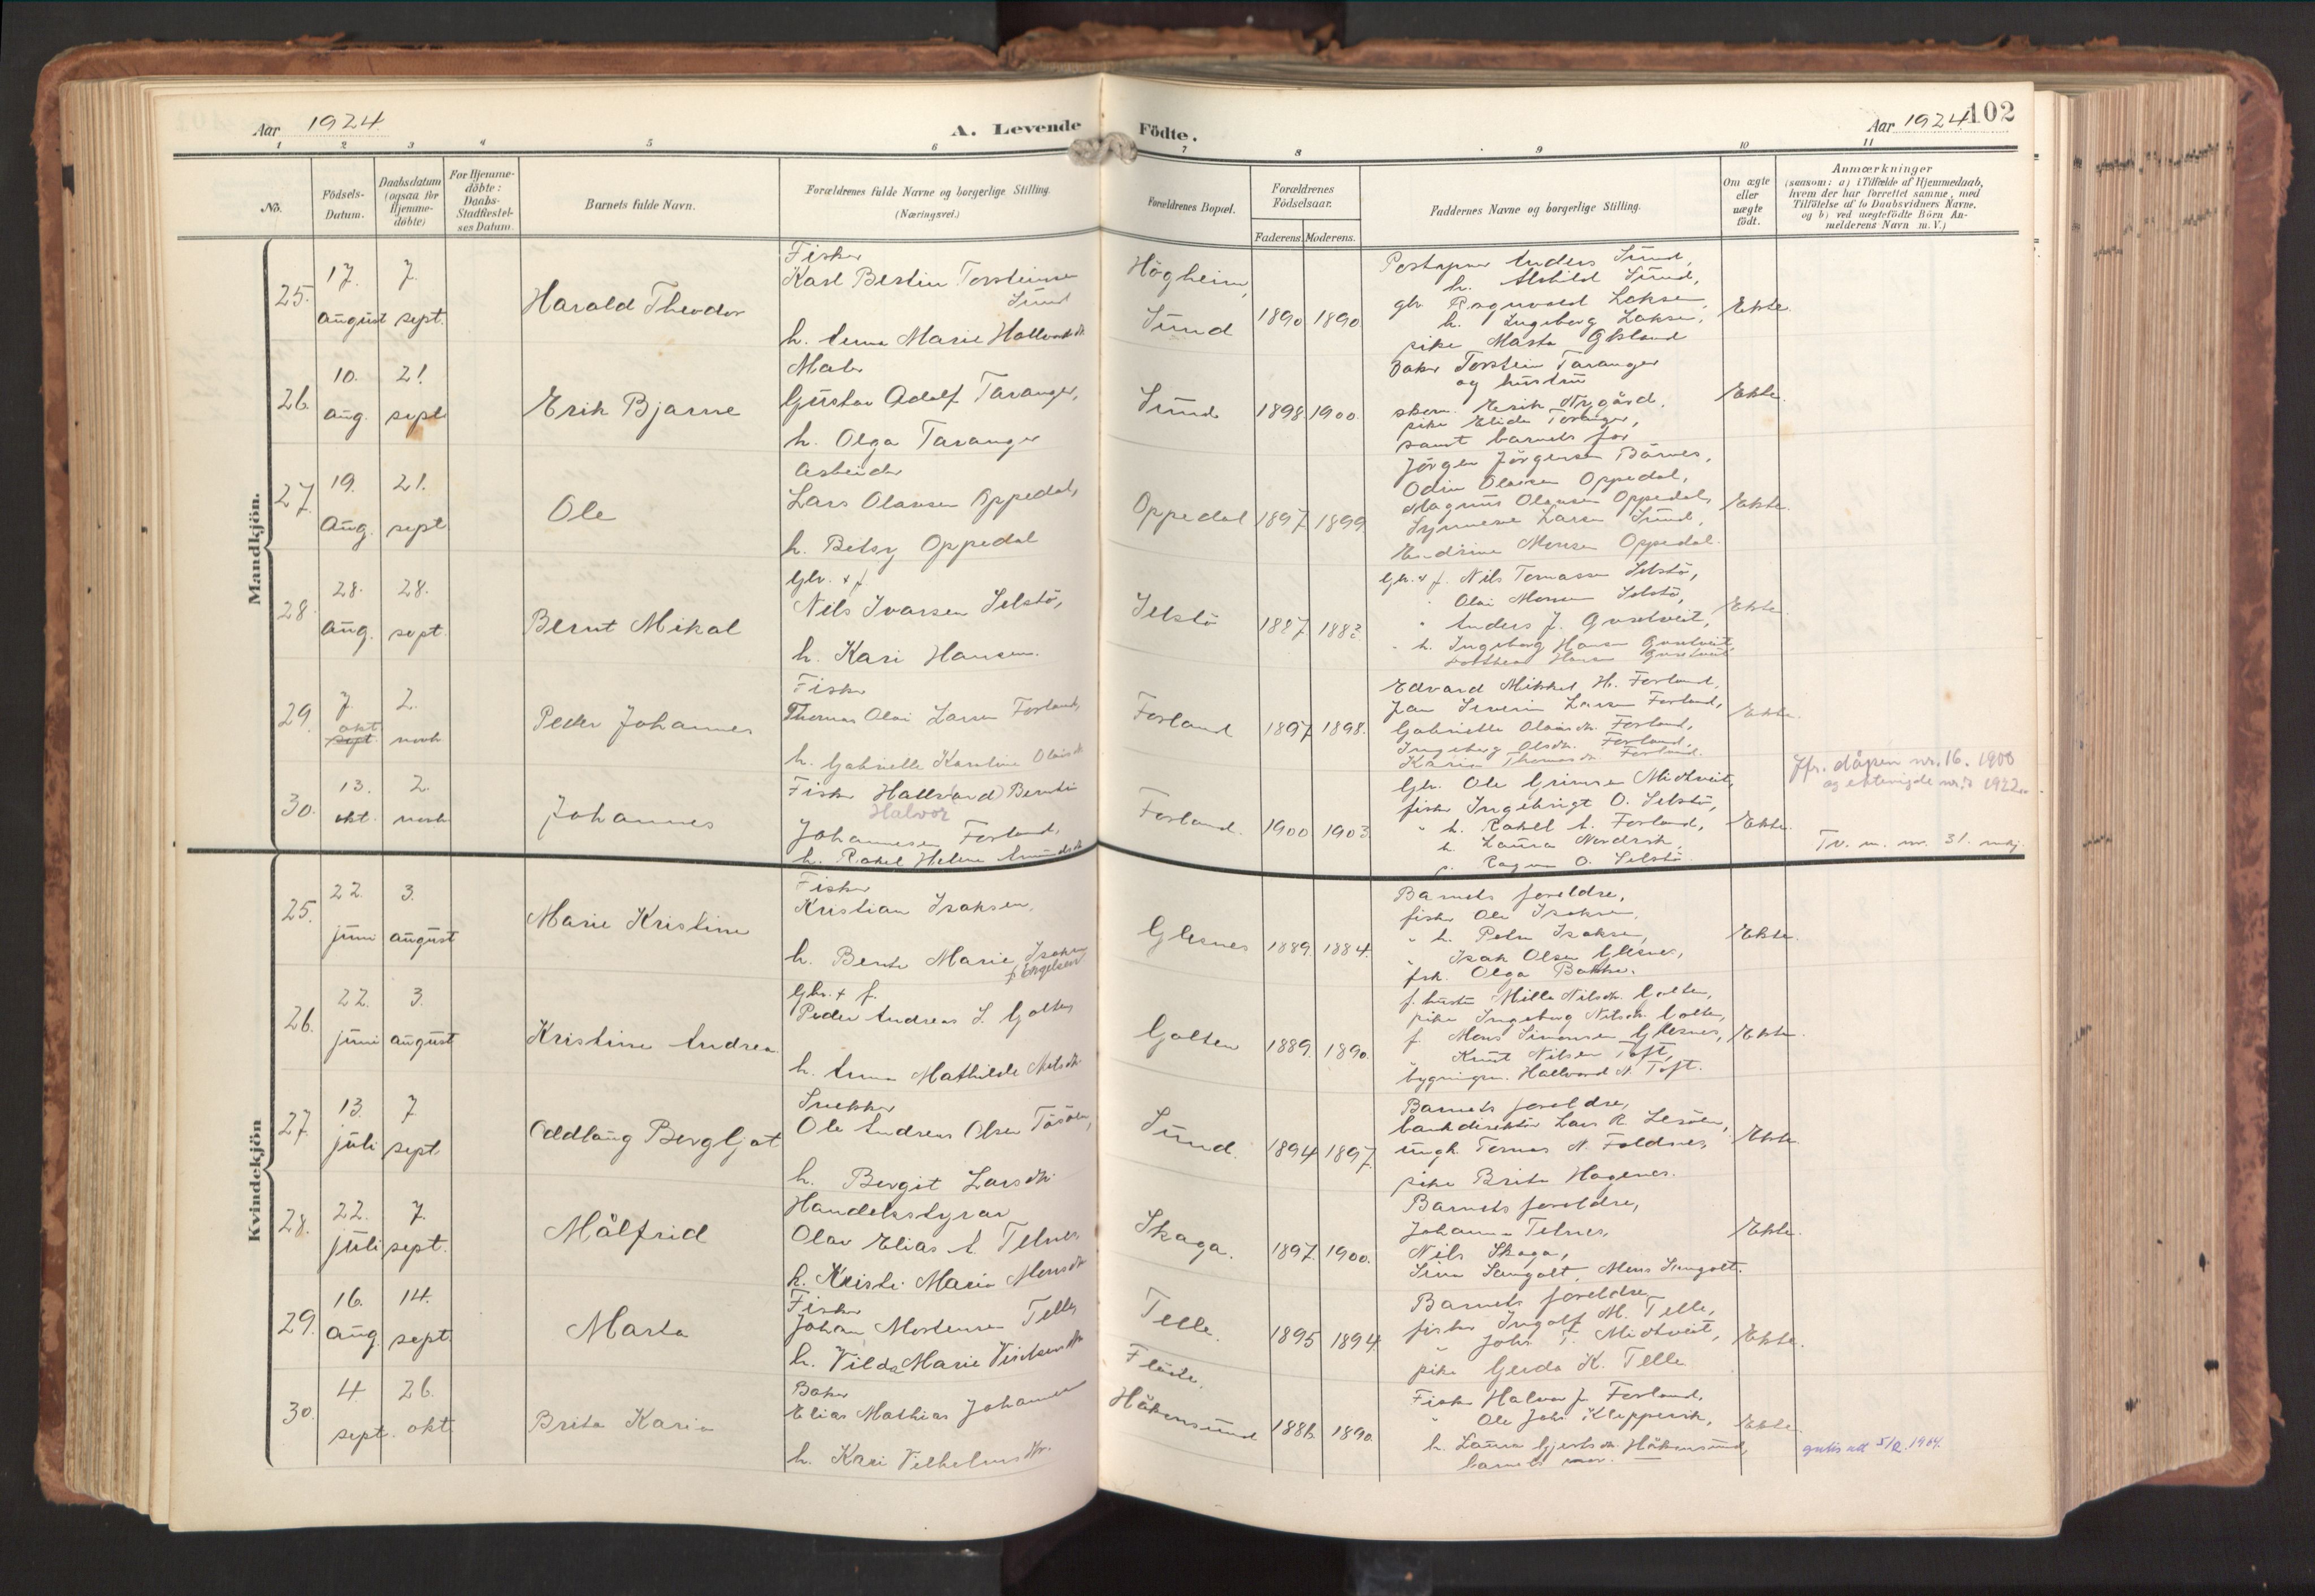 Aar 1924 A. Levende Födte. Aar 1924 102
1 2 3 4 5 6 7 8 9 10 11
No.
Födsels-
Datum.
Daabsdatum
(ogsaa for
Hjemme-
döbte)
For Hjemme-
döbte:
Daabs-
Stadfæstel-
ses Datum.
Barnets fulde Navn.
Forældrenes fulde Navne og borgerlige Stilling.
(Næringsvei.)
Forældrenes Bopæl.
Forældrenes
Födselsaar.
Faderens. Moderens.
Faddernes Navne og borgerlige Stilling.
Om ægte
eller
uægte
födt.
Anmærkninger
(saasom: a) i Tilfælde af Hjemmedaab,
hvem der har forrettet samme, med
Tilföielse af to Daabsvidners Navne,
og b) ved uægtefödte Börn An-
melderens Navn m. V.)
Mandkjön.
25. 17. august 7. sept. Harald Theodor
Fisker
Karl Bertin Torsteinsen
Sund
h. Anna Marie Hallvardsdtr
Högheim,
Sund
1890 1890.
Anders Sund,
h. Alvhild Sund,
gbr. Ragnvald Zaksen,
h. Ingeborg Zaksen,
pike Marta Glesland
Ekte.
26. 10. aug. 21. sept. Erik Bjarne
Maler
Gustav Adolf Taranger,
h. Olga Taranger
Sund
1898 1900.
Baker Torstein Taranger
og hustru
skom. Erik Nygård,
pike Elida Taranger,
samt barnets far
Ekte.
27. 19. Aug. 21. sept. Ole
Arbeider
Lars Olavsen Oppedal,
h. Betsy Oppedal
Oppedal
1897 1899
Jörgen Jörgensen Börnes,
Odin Olavsen Oppedal,
Magnus Olavsen Oppedal,
Synneve Larsen Sund,
Monsen Oppedal.
Ekte.
28. 28. aug. 28. sept. Bernt Mikal
Gbr. + f.
Nils Ivarsen Selstö,
h. Kari Hansen.
Selstö
1887 1882.
Gbr. + f. Nils Tomassen Selstö,
" Olai Monsen Selstö,
" Anders J. Golstveit,
" h. Ingeborg Hansen
Ekte.
29. 7. okt. sept. 2. novb. Peder Johannes
Fisker
Thomas Olai Larsen Forland,
h. Gabrielle Karoline Olaisdtr
Forland
1897 1898.
Edvard Mikkel H. Forland,
Jan Severin Larsen Forland,
Gabrielle Olaisdtr. Forland,
Ingeborg Olsdtr. Forland.
Karia Thomasdtr Forland.
Ekte.
30. 13. okt. 2. novb. Johannes
Fisker Hallvard Berntin
Halvor
Johannesen Forland,
h. Rakel Helene Amundsdtr
Forland.
1900 1903
Gbr. Ole Grimsen Midtveit,
fisker Ingebrigt O. Selstö,
" h. Rakel A. Forland,
h. Laura Nordvik,
p. Ragna O. Selstö.
Ekte.
Jfr. dåpen nr. 16. 1900
og ektevigde nr. 7 1922
Tv. m. nr. 31. mkj.
Kvindekjön
25. 22. juni 3. august Marie Kristine
Fisker
Kristian Isaksen,
h. Berta Marie Isaksen
f. Engelsen
Glesnes
1889. 1884.
Barnets foreldre,
fisker Ole Isaksen,
" h. Petra Isaksen,
" Isak Olsen Glesnes,
frk. Olga Bakke.
Ekte.
26. 22. juni 3. august Kristine Andrea
Gbr. + f.
Peder Andreas S. Golten
h. Anna Mathilde Nilsdtr
Golten
1889. 1890.
f. hustru Milla Nilsdtr. Golten,
pike Ingeborg Nilsdtr. Golten,
f. Mons Simonsen Glesnes,
" Knut Nilsen Toft,
bygningsm. Hallvard N. Toft.
Ekte.
27. 13. juli 7. sept. Oddlaug Bergljot
Snekker
Ole Andreas Olsen Tösöen,
h. Bergit Larsdtr.
Sund.
1894 1897.
Barnets foreldre,
bankdirektör Lars R. Lesöen,
ungk. Tomas N. Foldnes,
pike Brita Hagenes.
Ekte.
28. 22. juli 7. sept. Målfrid
Handelsstyrar
Olav Elias A. Telnes
h. Kristi Maria Monsdtr
Skaga.
1897. 1900.
Barnets foreldre,
Johanna Telnes,
Nils Skaga,
Sina Sangolt, Mons Sangolt.
Ekte.
29. 16. Aug. 14. sept. Marta
Fisker
Johan Mortensen Telle
h. Vilda Marie
Telle.
1895 1894
Barnets foreldre
fisker Ingolf M. Telle,
" Johs T. Midtveit,
pike Gerda K. Telle
Ekte.
30. 4. sept. 26. okt. Brita Karia
Baker
Elias Mathias Johannesen
h. Kari Vilhelmsdtr.
Flöite,
Håkensund
1886. 1890.
Fisker Halvor J. Forland,
" Ole Johs Kleppevik,
h. Laura Gjertsdtr. Håkensund,
barnets mor.
Ekte.
gratis att 5/2. 1964.